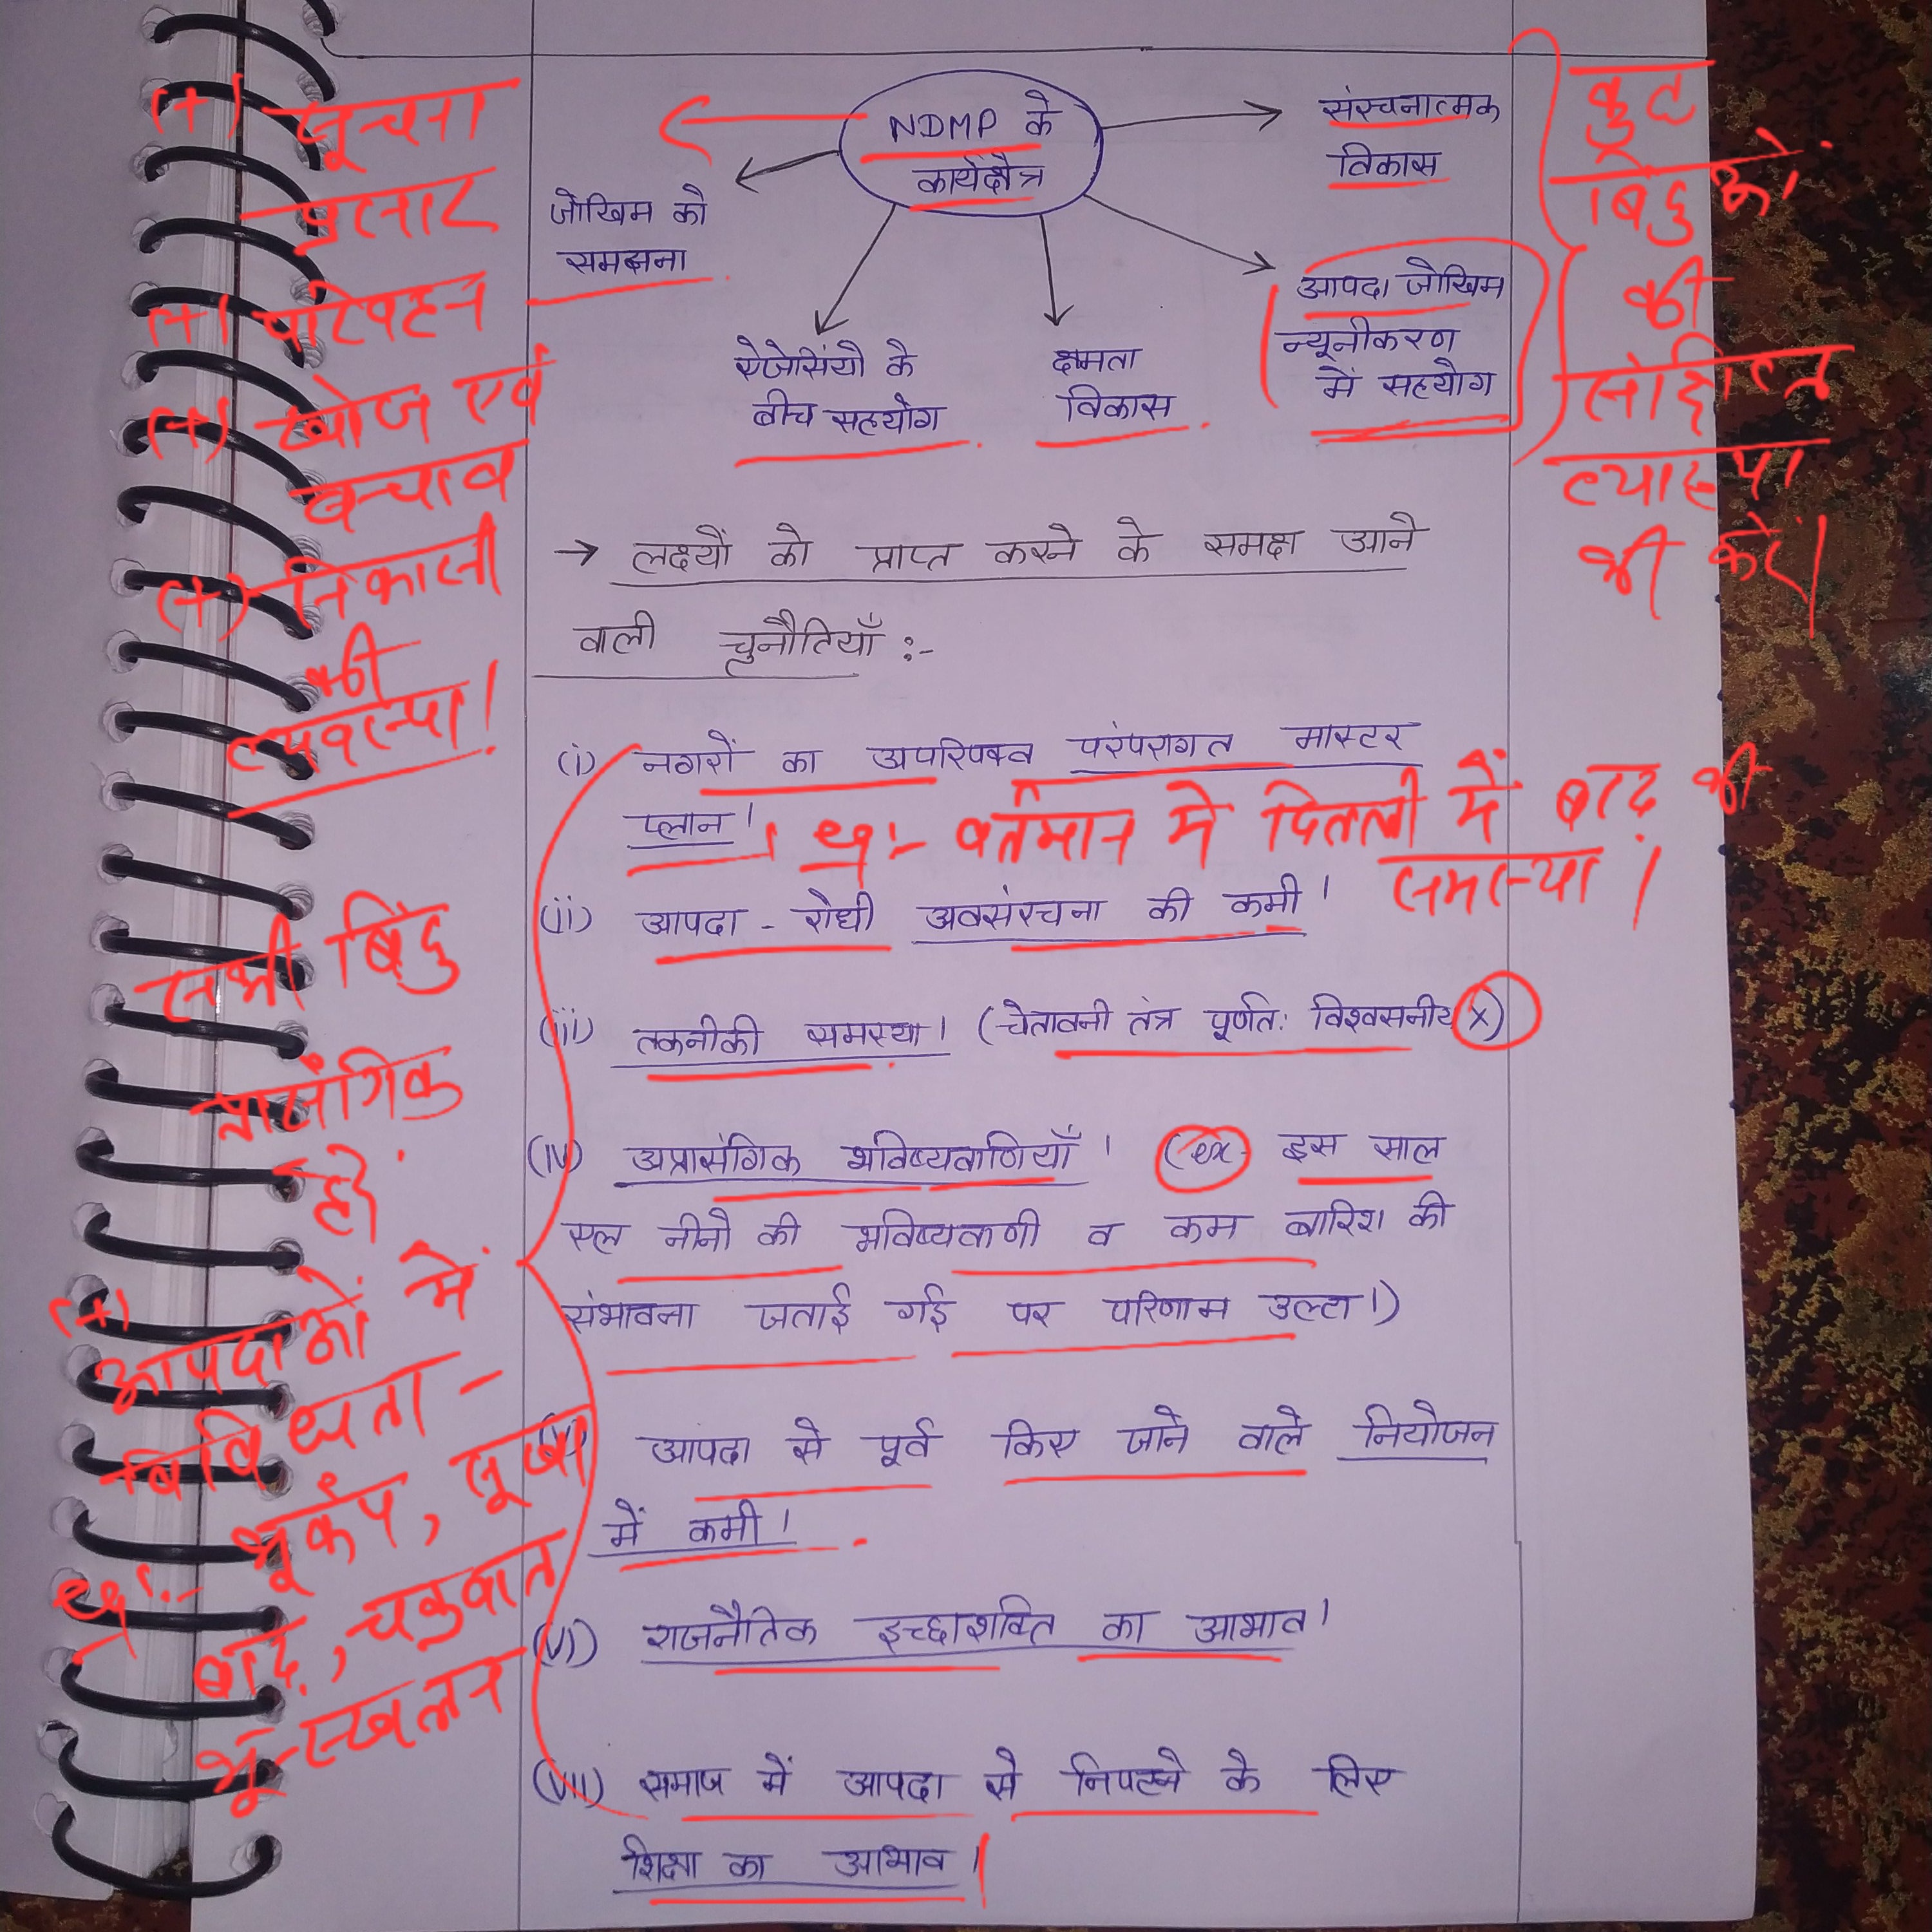 NDMP के
कार्यक्षेत्र
संरचनात्मक
विकास
जोखिम को
समझना
आपदा जोखिम
न्यूनीकरण
में सहयोग
ऐजेंसियों के
बीच सहयोग
क्षमता
विकास
→ लक्ष्यों को प्राप्त करने के समक्ष आने
वाली चुनौतियाँ :-
(i) नगरों का अपरिपक्व परंपरागत मास्टर
प्लान।
Eg:- वर्तमान में दिल्ली में बाढ़ की
समस्या।
(ii) आपदा - रोधी अवसंरचना की कमी।
(iii) तकनीकी समस्या। (चेतावनी तंत्र पूर्णत: विश्वसनीय X)
(iv) अप्रासंगिक भविष्यवाणियाँ। (ex- इस साल
एल नीनो की भविष्यवाणी व कम बारिश की
संभावना जताई गई पर परिणाम उल्टा।)
(v) आपदा से पूर्व किए जाने वाले नियोजन
में कमी।
(vi) राजनैतिक इच्छाशक्ति का आभाव।
(vii) समाज में आपदा से निपटने के लिए
शिक्षा का आभाव।
(+) सूचना
प्रसार
(+) परिवहन
(+) खोज एवं
बचाव
(+) निकासी
की
व्यवस्था!
सभी बिंदु
प्रासंगिक
हैं.
(+)
आपदाओं में
विविधता -
Eg:- भूकंप, सूखा
बाढ़, चक्रवात
भू-स्खलन
कुछ
बिंदुओं
की
संक्षिप्त
व्याख्या
भी करें।